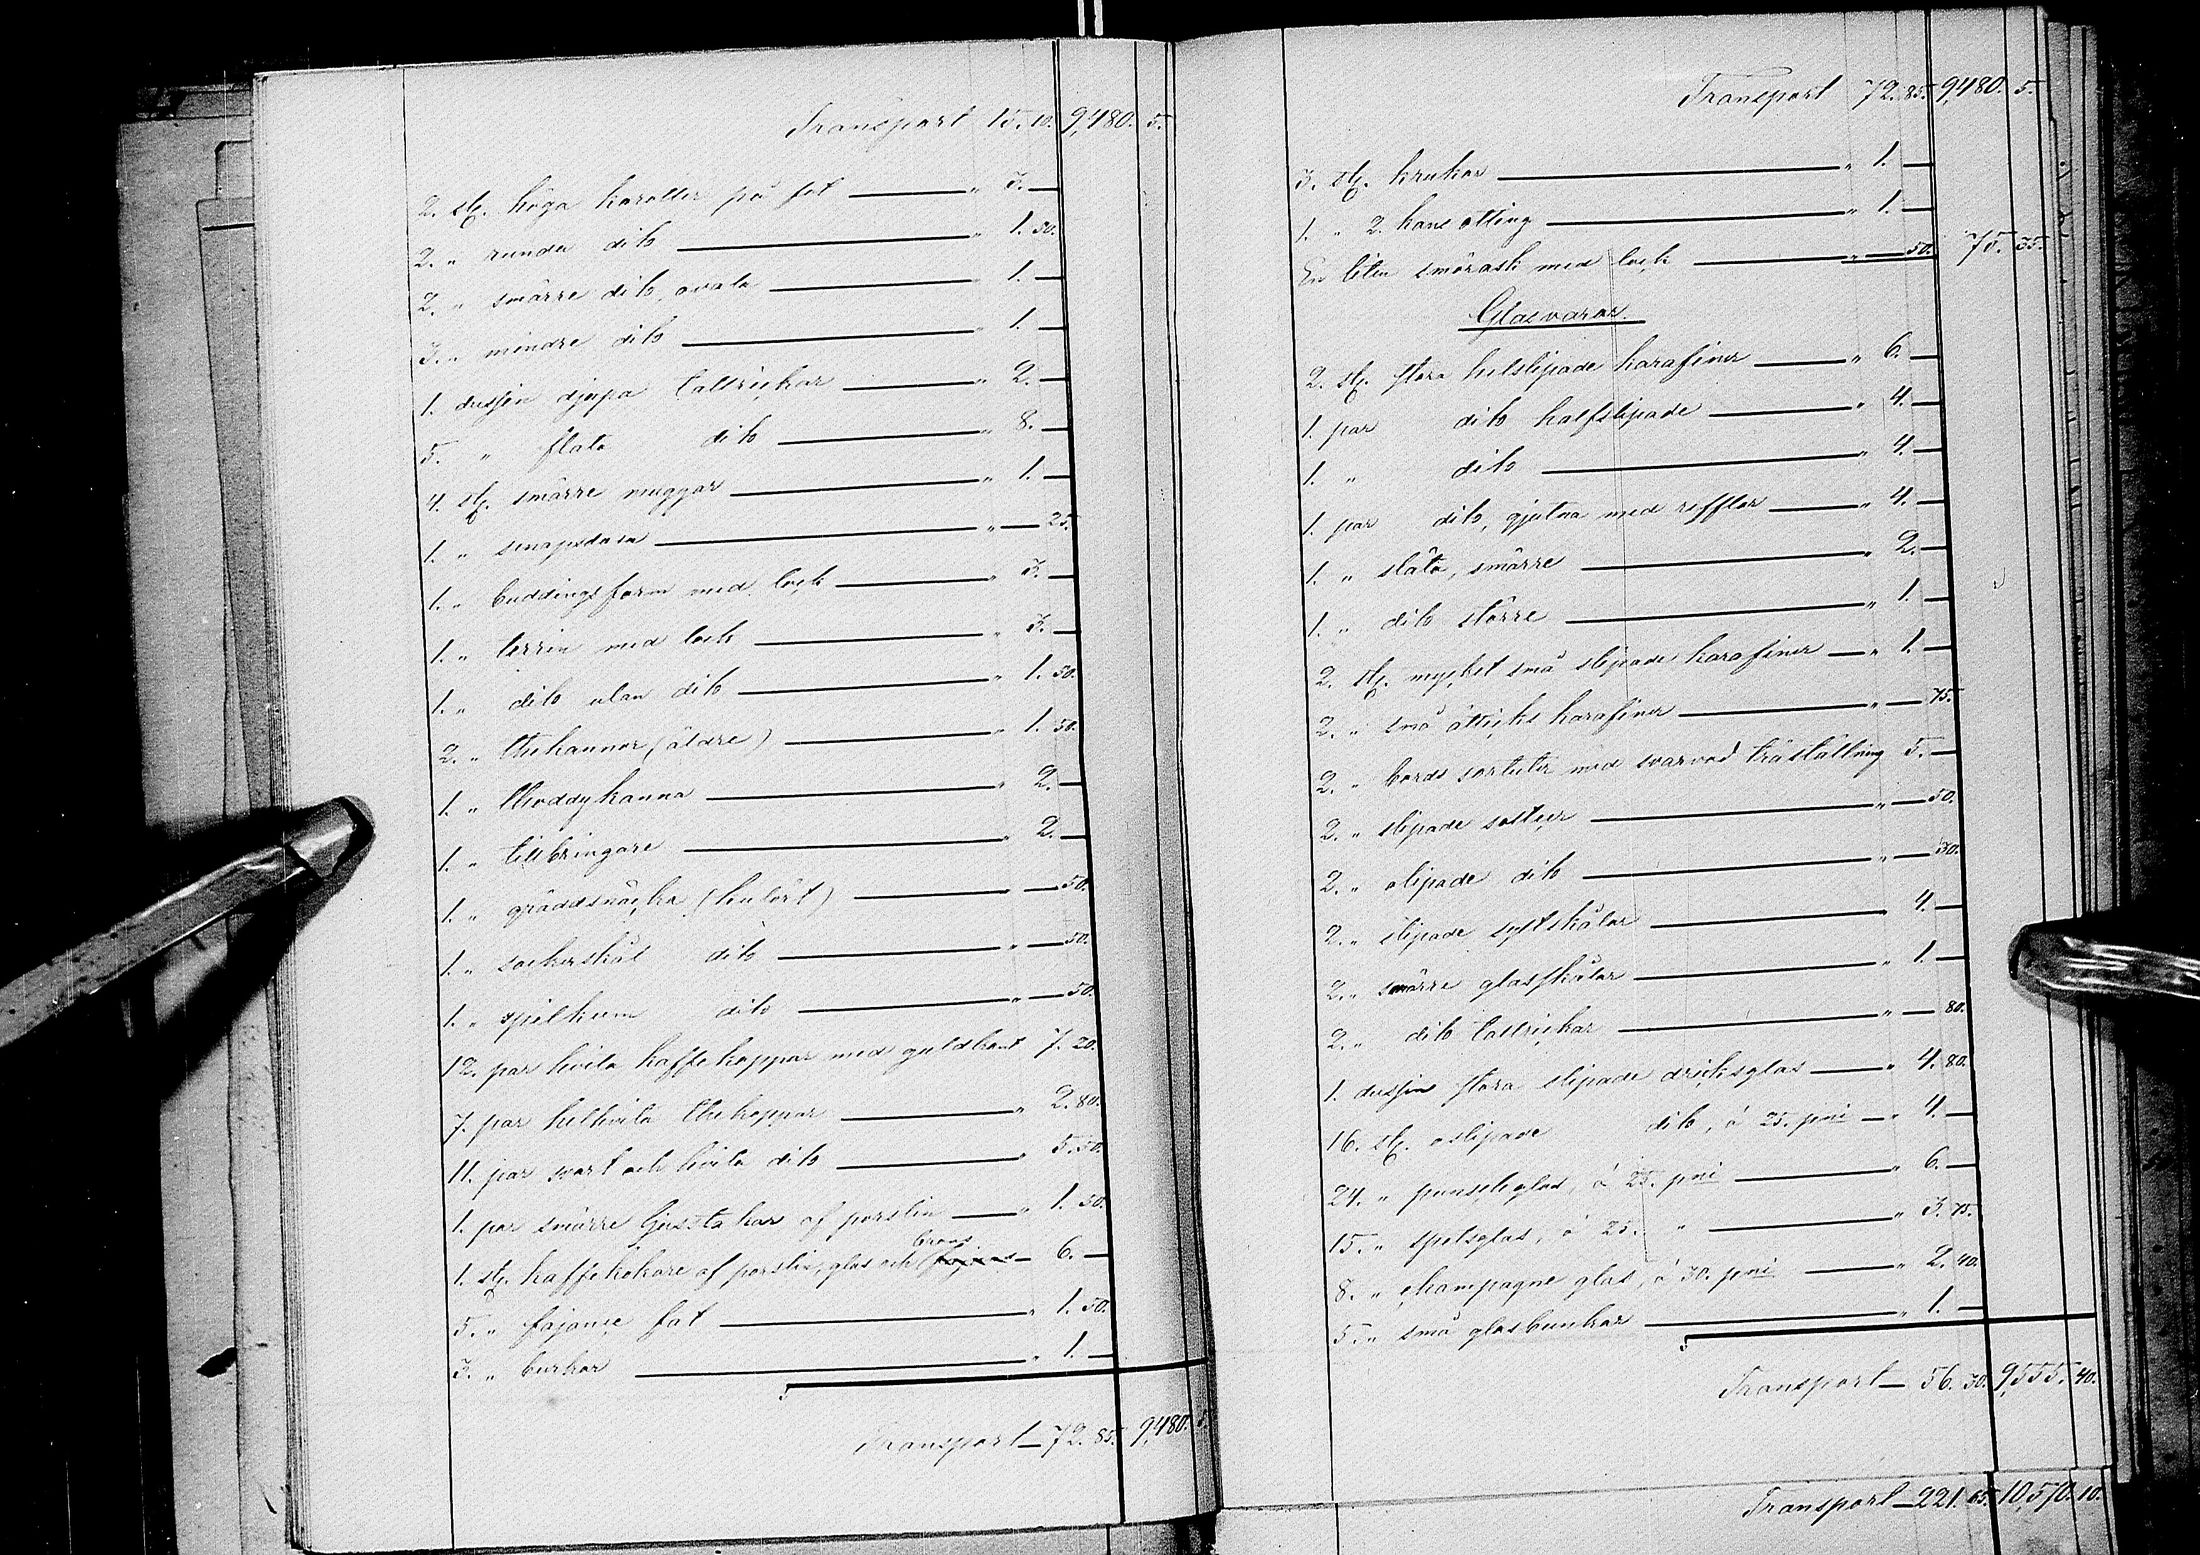 Transport 15. 10. 9,480. 5.
2. st. höga karotter på fot — " 3. —
2. " runda dito — " 1. 50.
2. " smärre dito, ovala — " 1. —
3. " mindre dito — " 1. —
1. dussin djupa tallrickar — " 2. —
5. " flata dito — " 8. —
4. st. smärre muggar — " 1. —
1. " senapsdosa — " — 25.
1. " buddingsform med lock — " 3. —
1. " terrin med lock — " 3. —
1. " dito utan dito — " 1. 50.
2. " thekannor (äldre) — " 1. 50.
1. " thoddykanna — " 2. —
1. " tillbringare — " 2. —
1. " gräddsnäcka (kulört) — " — 50.
1. " sockerskål dito — " — 50.
1. " spilkum dito — " — 50.
12. par hvita kaffekoppar med guldkant 7. 20.
7. par helhvita thekoppar — " 2. 80.
11. par svart och hvita dito — " 5. 50.
1. par smärre ljusstakar af porslin — " 1. 50.
1. st. kaffekokare af porslin, glas och brons — 6. —
5. " fajance fat — " 1. 50.
3. " burkar — " 1. —
Transport — 72. 85. 9,480. 5.
Transport 72. 85. 9,480. 5.
3. st. krukor — " 1. —
1. " 2. kans åtting — " 1. —
En liten smörask med lock — " — 50. 75. 35.
Glasvaror.
2. st. stora helslipade karafiner — " 6. —
1. par dito halfslipade — " 4. —
1. " dito — " 4. —
1. par dito, gjutna med refflor — " 4. —
1. " släta, smärre — " 2. —
1. " dito större — " 1. —
2. st. mycket små slipade karafiner — " 1. —
2. " små ätticks karafiner — " — 75.
2. " bords surtuter med svarvad träställning 5. —
2. " slipade saltser — " — 50.
2. " olipade dito — " — 30.
2. " slipade syltskålar — " 4. —
2. " smärre glasskålar — " 1. —
2. " dito tallrickar — " — 80.
1. dussin stora slipade dricksglas — " 4. 80.
16. st. oslipade dito, á 25. pni — " 4. —
24. " punschglas, á 25. pni — " 6. —
15. " spetsglas, á 25. " — " 3. 75.
8. " champagne glas, á 30. pni — " 2. 40.
5. " små glasbunkar — " 1. —
Transport — 56. 30. 9,555. 40.
Transport — 221. 65. 10,570. 10.